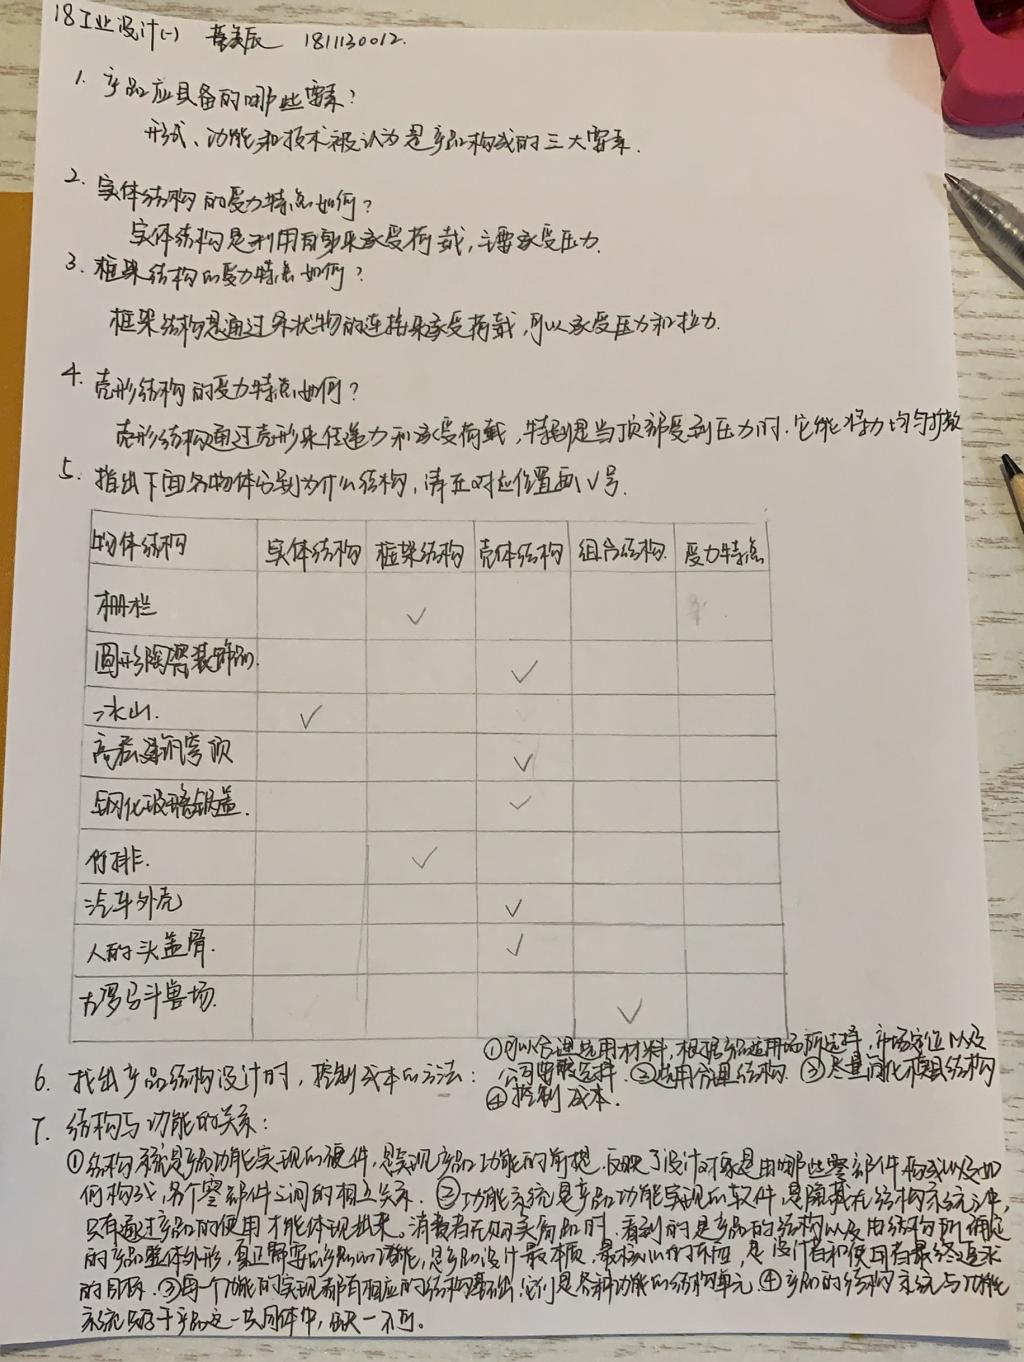 18工业设计(一) 美辰 1811130012.
1. 产品应具备的哪些要素?
形式、功能和技术被认为是产品构成的三大要素.
2. 实体结构的受力特点如何?
实体结构是利用自身来承受荷载,主要承受压力.
3. 框架结构的受力特点如何?
框架结构是通过条状物的连接来承受荷载,可以承受压力和拉力.
4. 壳形结构的受力特点如何?
壳形结构通过壳形来传递力和承受荷载,特别是当顶部受到压力时.它能将力均匀扩散
5. 指出下面各物体分别为什么结构,请在对应位置画√号.
物体结构 实体结构 框架结构 壳体结构 组合结构. 受力特点
栅栏 √
圆形陶器装饰品. √
冰山. √
高层建筑穹顶 √
钢化玻璃锅盖. √
竹排. √
汽车外壳 √
人的头盖骨. √
古罗马斗兽场. √
①可以合理选用材料,根据产品适用场所选择,市场定位以及
6. 找出产品结构设计时,控制成本的方法: 公司选择.②选用合理结构.③尽量简化模具结构
④控制成本.
7. 结构与功能的关系:
①结构系统是产品功能实现的硬件,是实现产品功能的前提,反映了设计对象是由哪些零部件构成以及如
何构成,各个零部件之间的相互关系.②功能系统是产品功能实现的软件,是隐藏在结构系统之中,
只有通过产品的使用才能体现出来。消费者在购买商品时,看到的是产品的结构以及由结构所确定
的产品整体外形,真正需要的是产品的功能,是产品设计最本质,最核心的,是设计者和使用者最终追求
的目标.③每一个功能的实现都有相应的结构基础,它们是各种功能的结构单元.④产品的结构系统与功能
系统于产品这一共同体中,缺一不可。